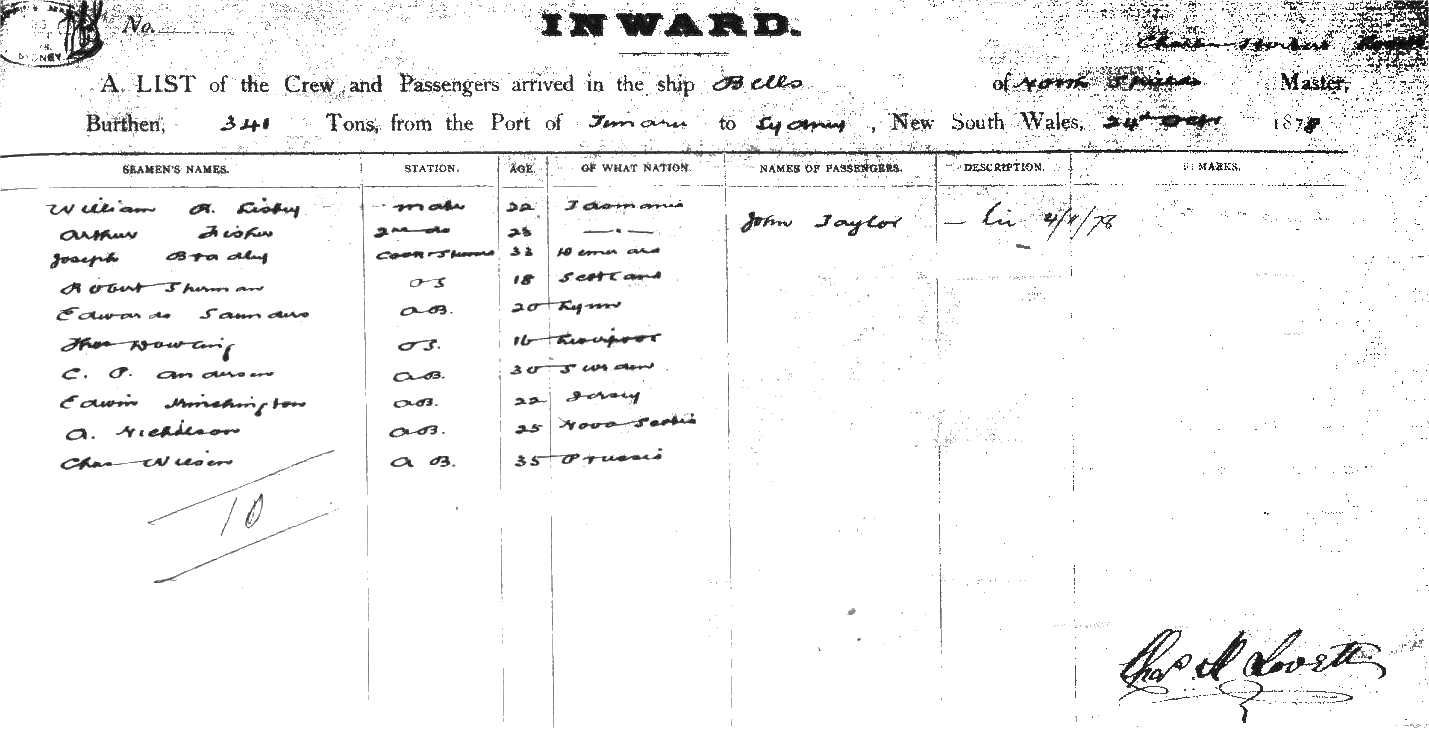 No.
INWARD.
A LIST of the Crew and Passengers arrived in the ship Bells of North Shields Master,
Burthen, 341 Tons, from the Port of Timaru to Sydney, New South Wales, 24th Octr 1878
SEAMEN'S NAMES. STATION. AGE. OF WHAT NATION. NAMES OF PASSENGERS. DESCRIPTION. REMARKS.
William R. Mate 22 Tasmania
Arthur Fisher 2nd do 28 — " — John Taylor — 4/11/78
Joseph Bradley Cook & 33
Robert OS 18 Scotland
Edward Saunders AB. 20 Lynn
Thos Dowling OS. 16 Liverpool
C. P. Anderson AB. 30 Sweden
Edwin AB. 22 Jersey
A. Nicholson AB. 25 Nova Scotia
Chas Wilson AB. 35 Prussia
10
Chas H Lovett